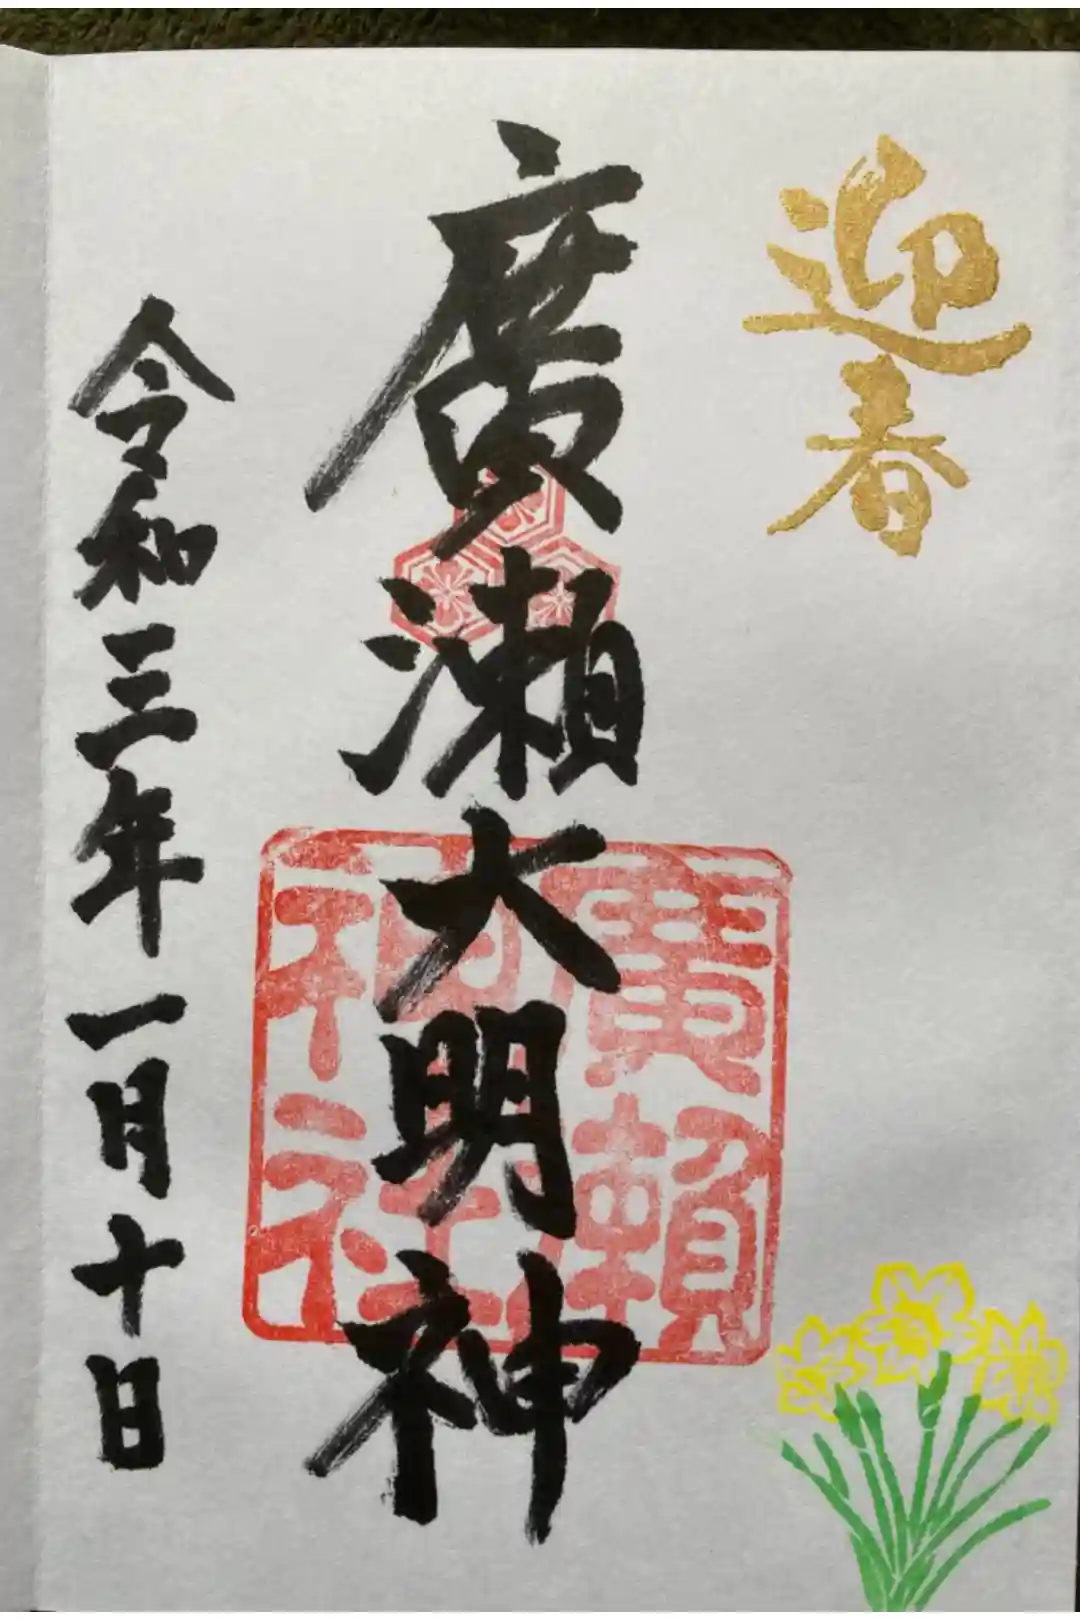 迎春
廣瀬大明神
廣瀬
神社
令和三年一月十日